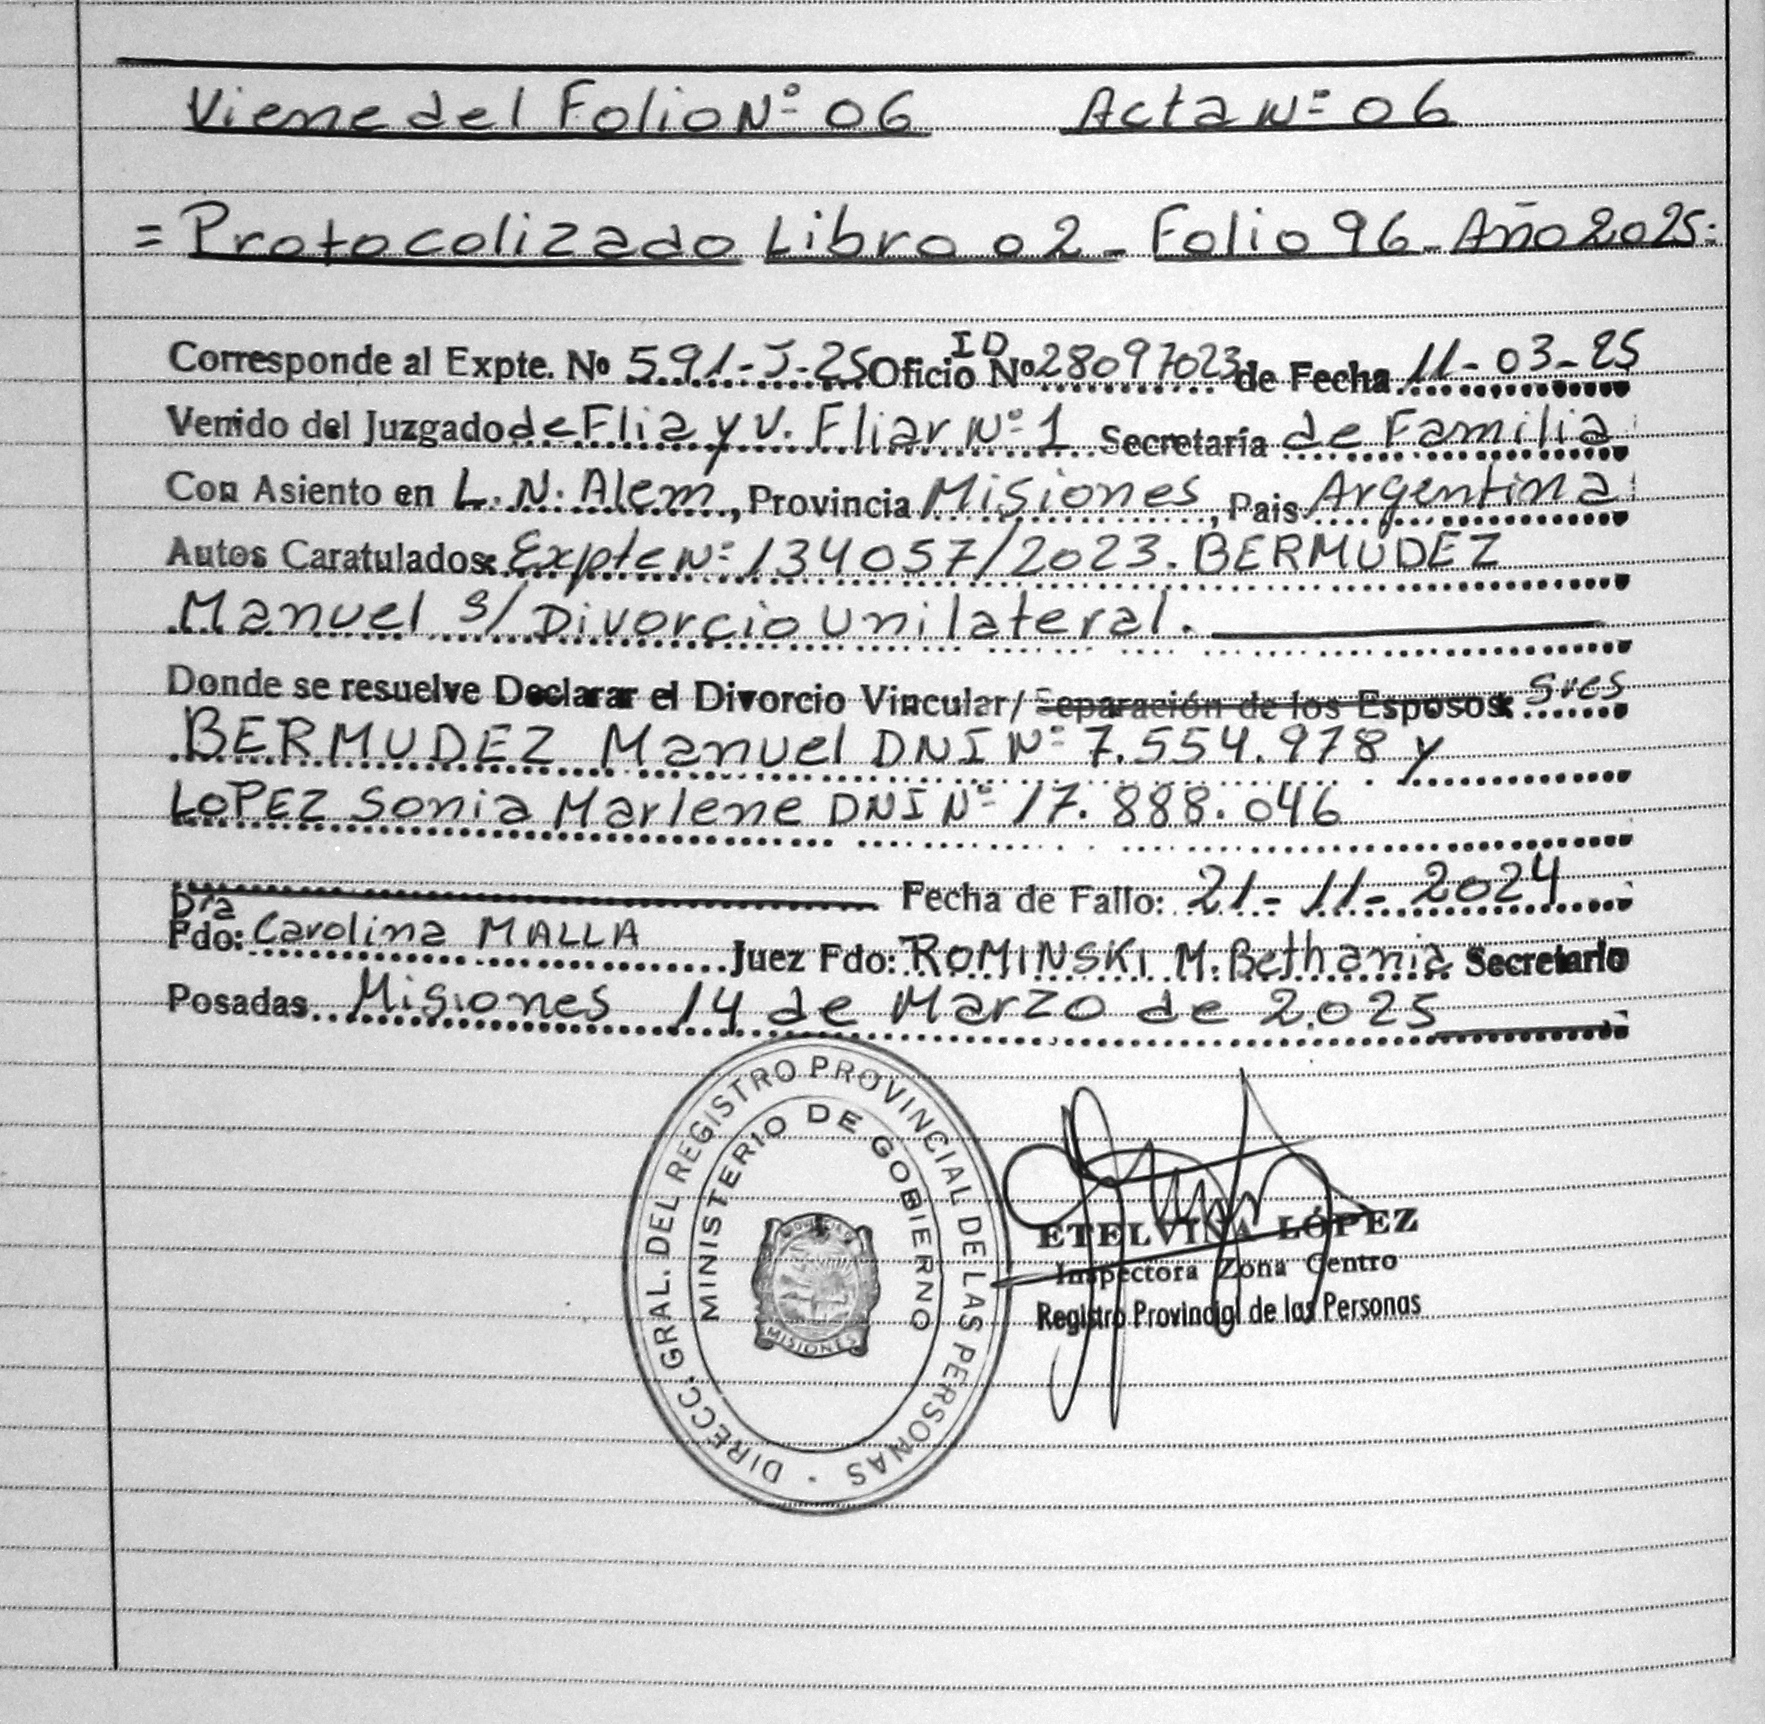 Viene del Folio Nº 06 Acta Nº 06
= Protocolizado Libro 02 - Folio 96 - Año 2025:
Corresponde al Expte. Nº 591-J-25 Oficio ID Nº 28097023 de Fecha 11-03-25
Venido del Juzgado de Flia y V. Fliar Nº 1 Secretaría de Familia
Con Asiento en L. N. Alem, Provincia Misiones, Pais Argentina
Autos Caratulados: Expte Nº 134057/2023. BERMUDEZ
Manuel s/ Divorcio Unilateral.
Donde se resuelve Declarar el Divorcio Vincular/ Separación de los Esposos: Sres
BERMUDEZ Manuel DNI Nº 7.554.978 y
LOPEZ Sonia Marlene DNI Nº 17.888.046
Fecha de Fallo: 21-11-2024
Dra
Fdo: Carolina MALLA Juez Fdo: ROMINSKI M. Bethania Secretario
Posadas Misiones 14 de Marzo de 2.025
DIRECC. GRAL. DEL REGISTRO PROVINCIAL DE LAS PERSONAS
MINISTERIO DE GOBIERNO
PROVINCIA
MISIONES
ETELVINA LÓPEZ
Inspectora Zona Centro
Registro Provincial de las Personas